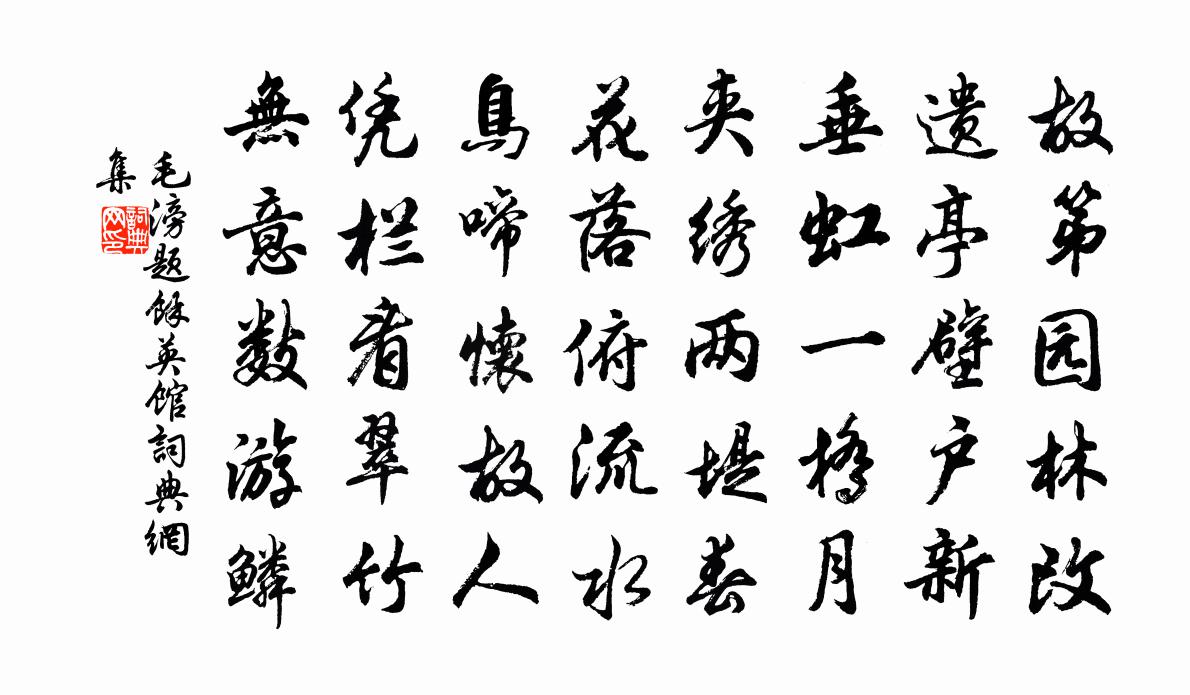 故第园林改
遗亭壁户新
垂虹一桥月
夹绣两堤春
花落俯流水
鳥啼懷故人
凭栏看翠竹
無意数游鳞
毛滂题餘英馆詞典網
集
詞典网印